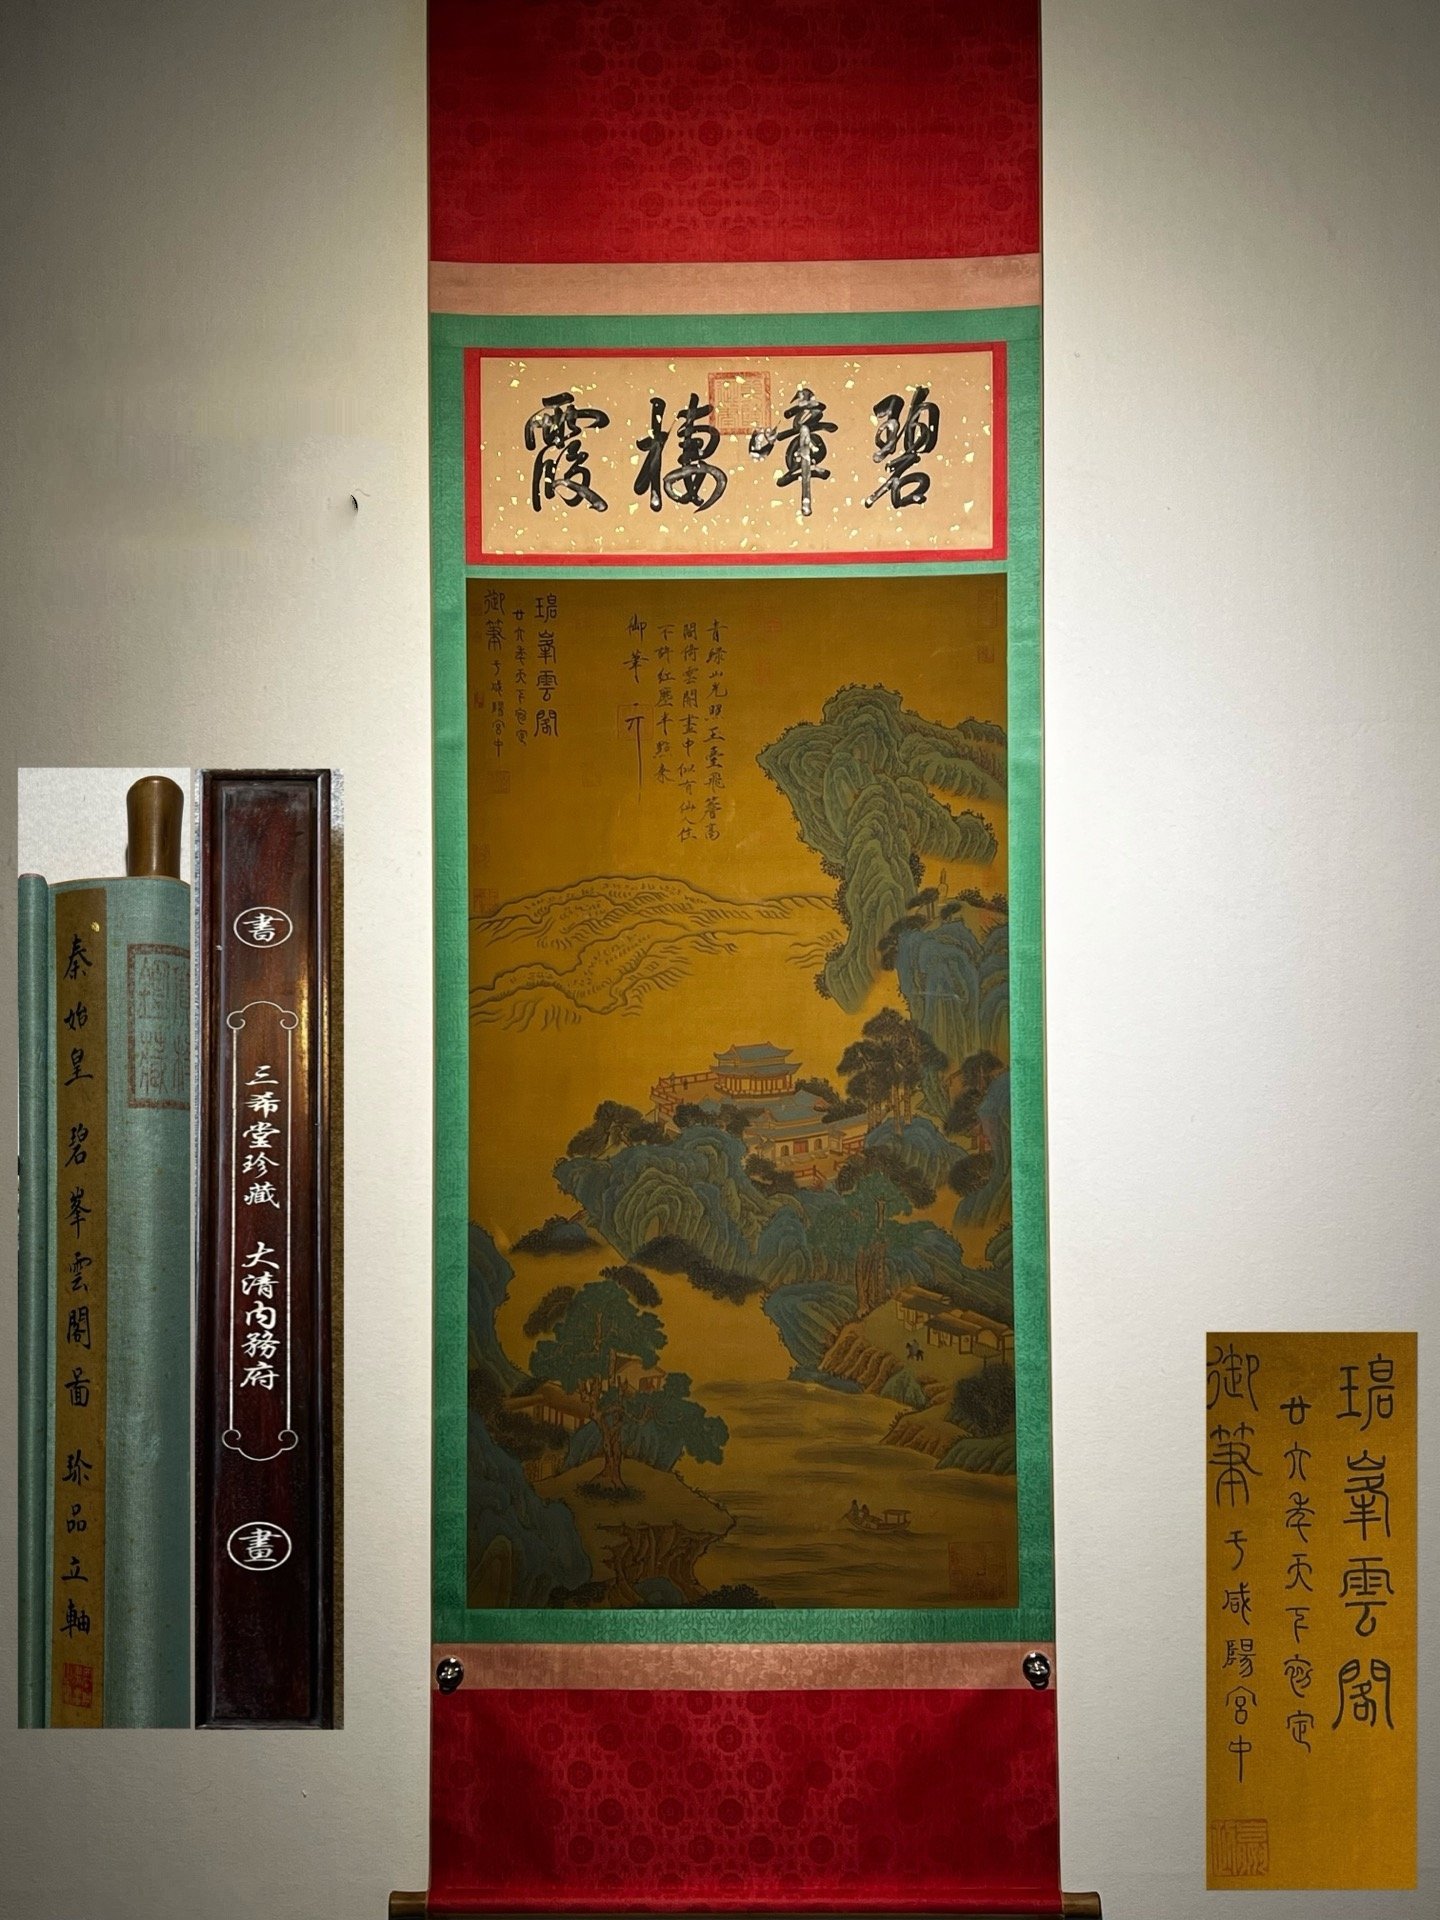 碧嶂棲霞
青綠山光照玉臺飛蕚高
閣倚雲開畫中似有仙人住
不許紅塵半點來
御筆
碧峯雲閣
廿六年天下寧定
御筆于咸陽宮中
秦始皇 碧峯雲閣圖 珍品立軸
書
三希堂珍藏 大清内務府
畫
碧峯雲閣
廿六年天下寧定
御筆于咸陽宮中